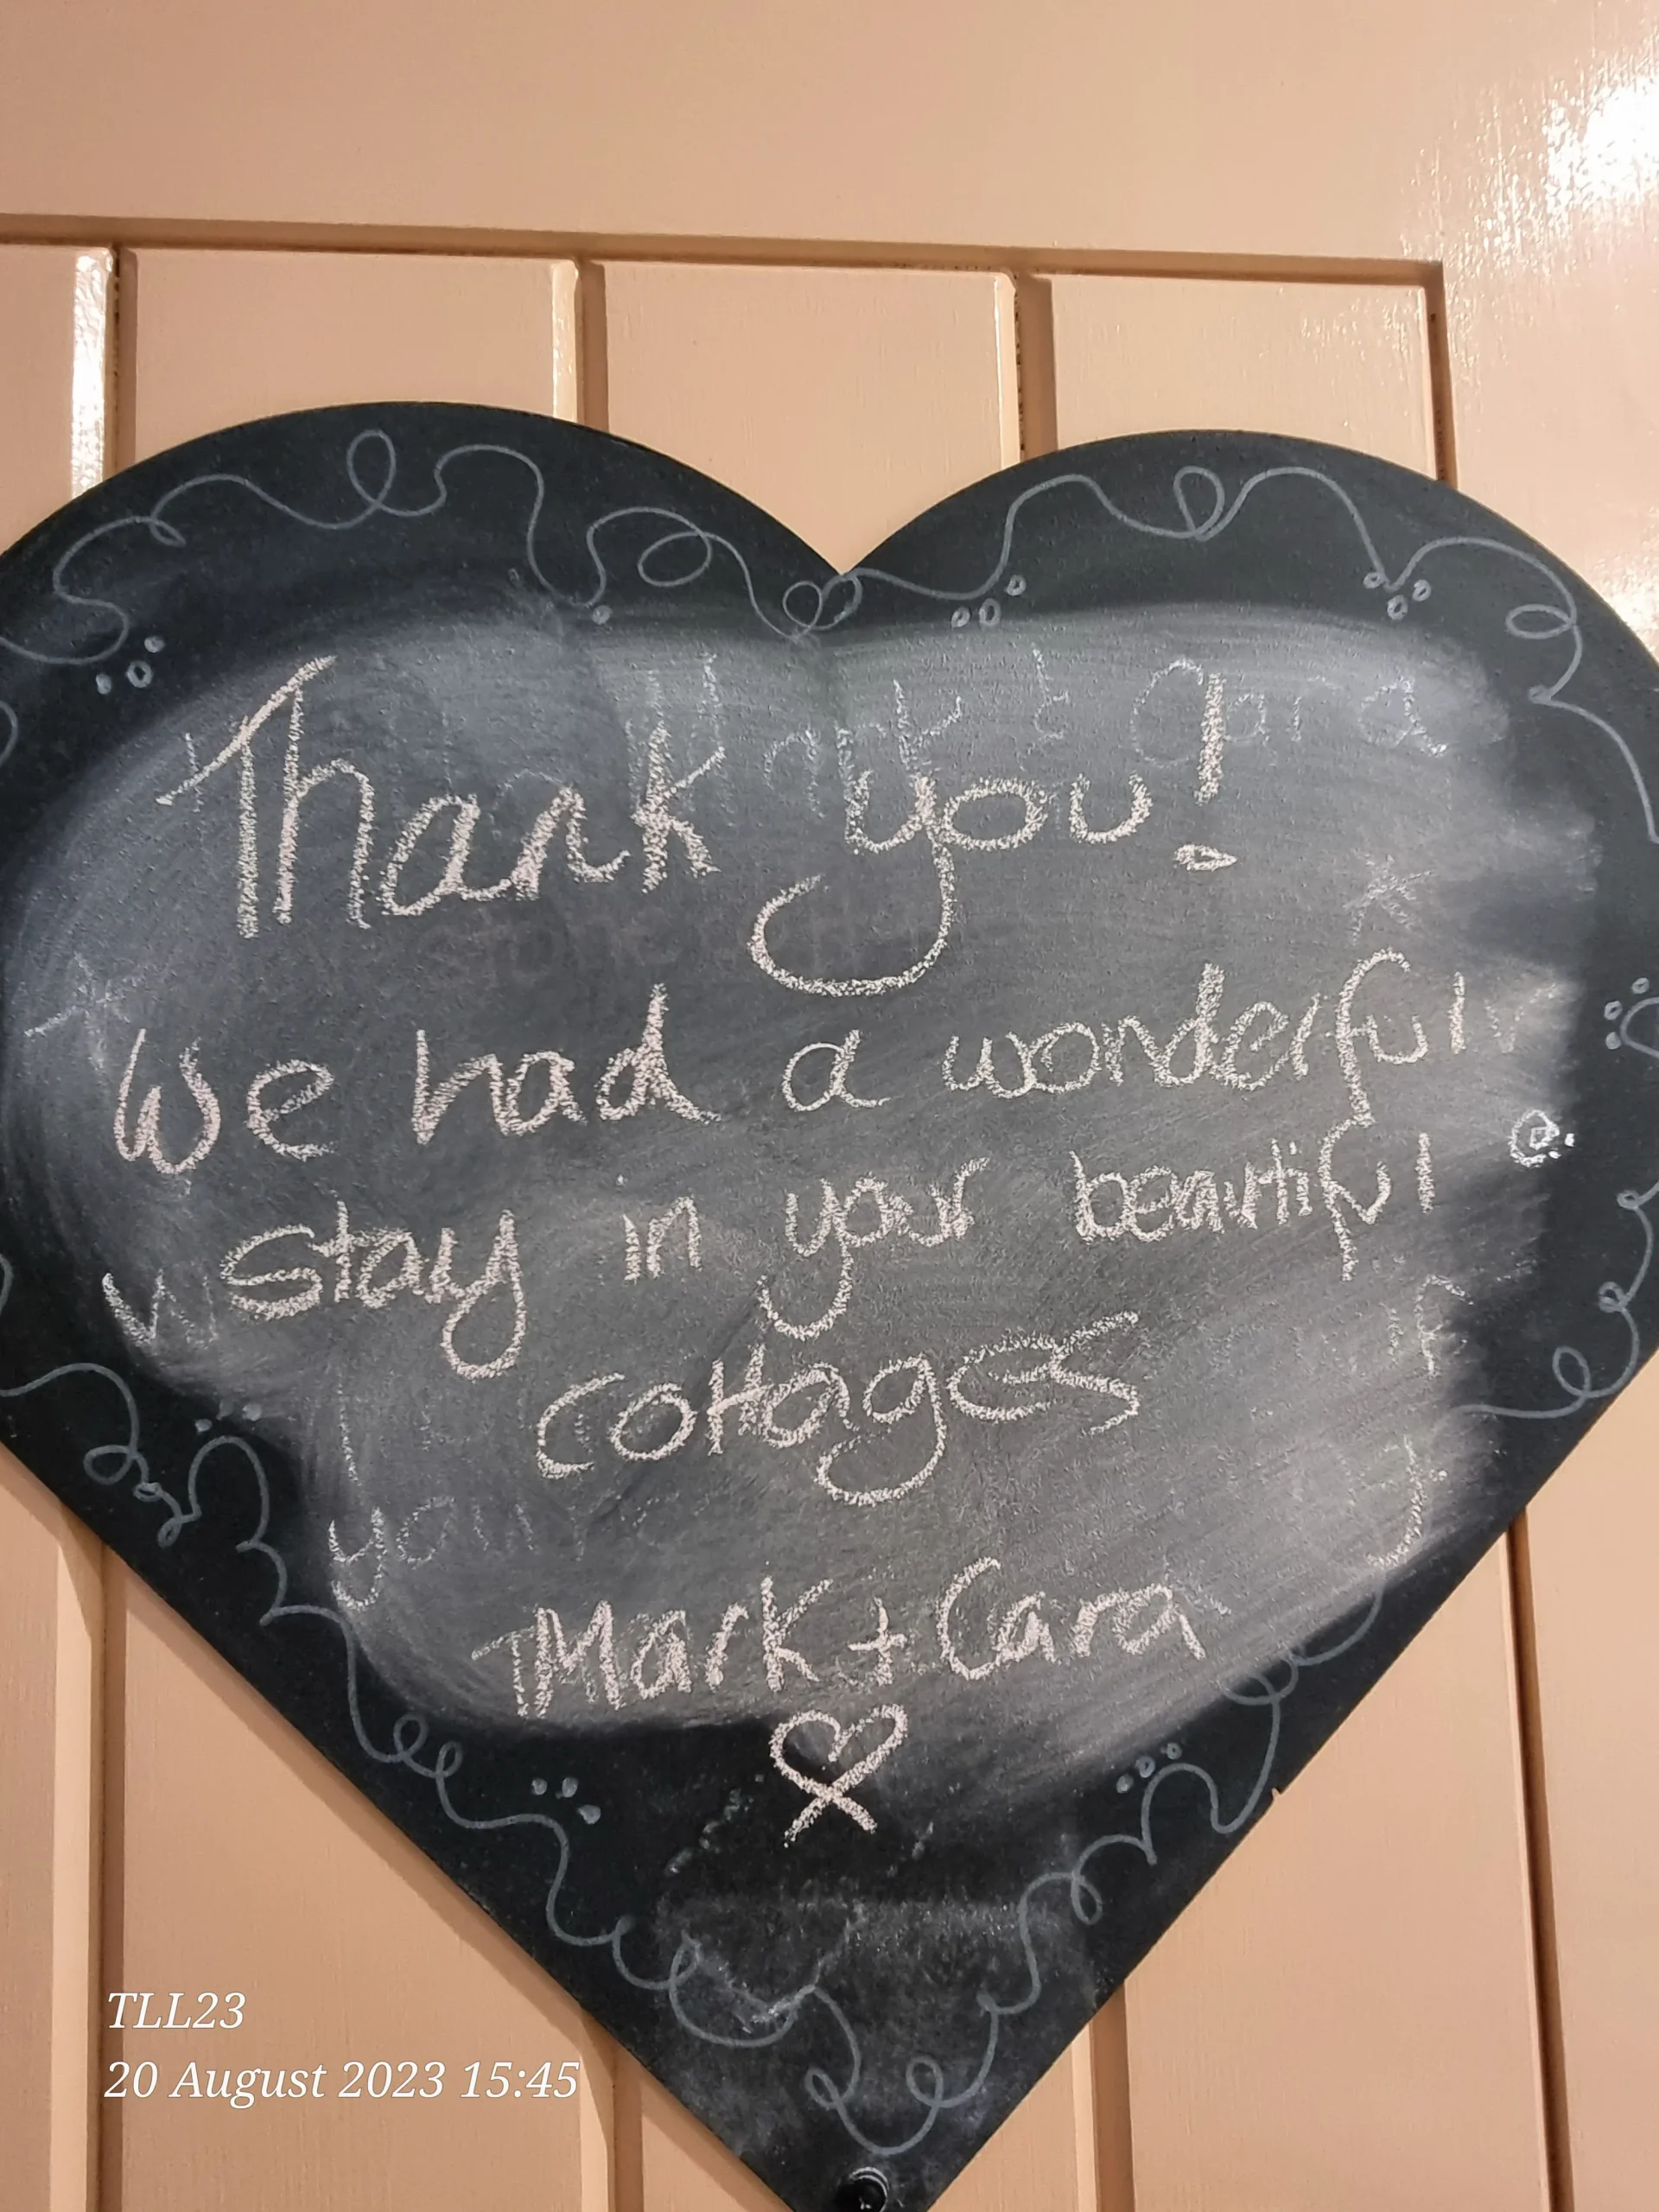 Mark & Cara
Thank you!
We had a wonderful
stay in your beautiful
cottages
your
Mark + Cara
TLL23
20 August 2023 15:45